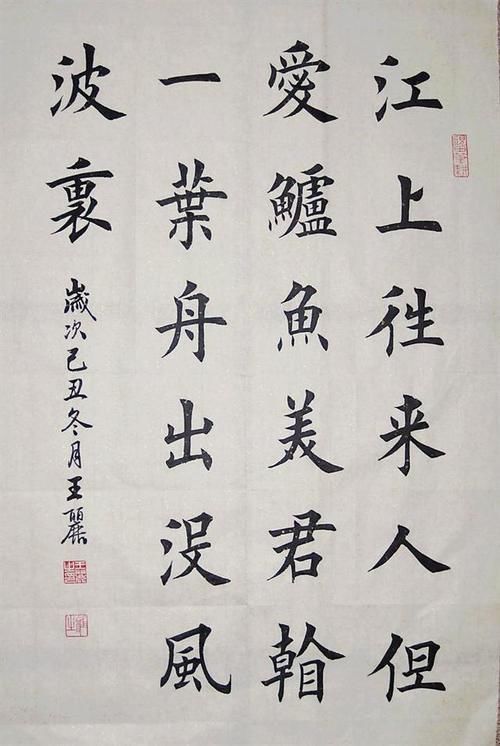 江上徃来人但
愛鱸魚美君
一葉舟出没風
波裏
歲次己丑冬月王麗